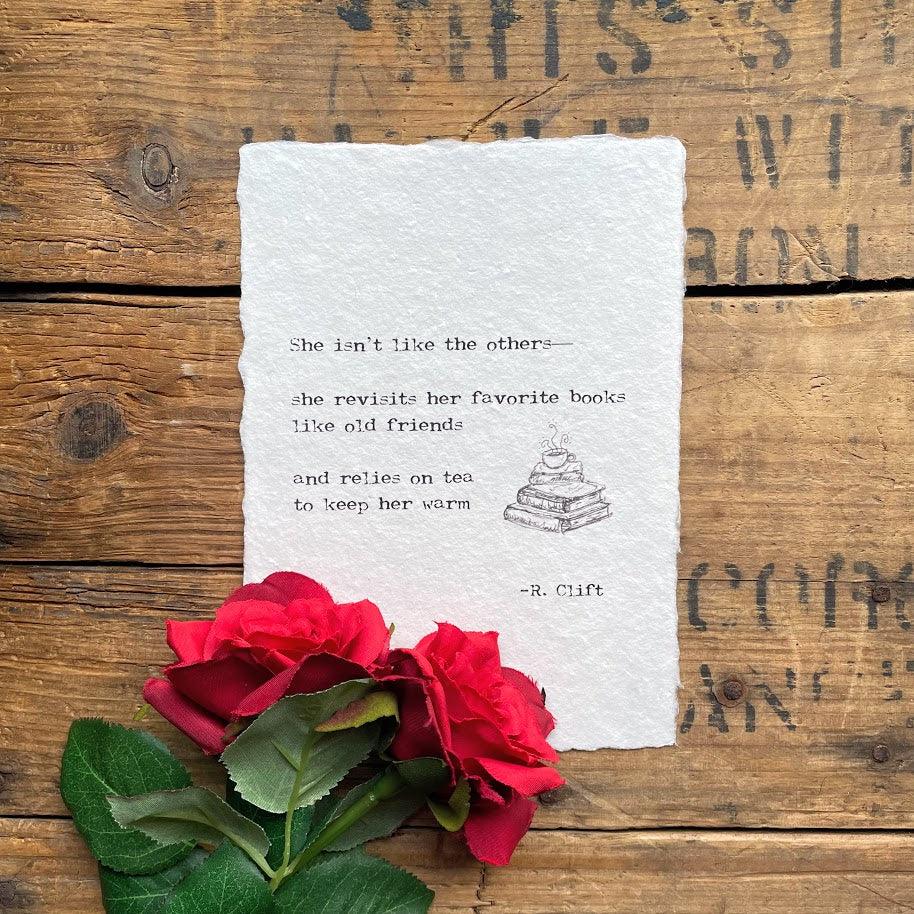 She isn't like the others—
she revisits her favorite books
like old friends
and relies on tea
to keep her warm
-R. Clift